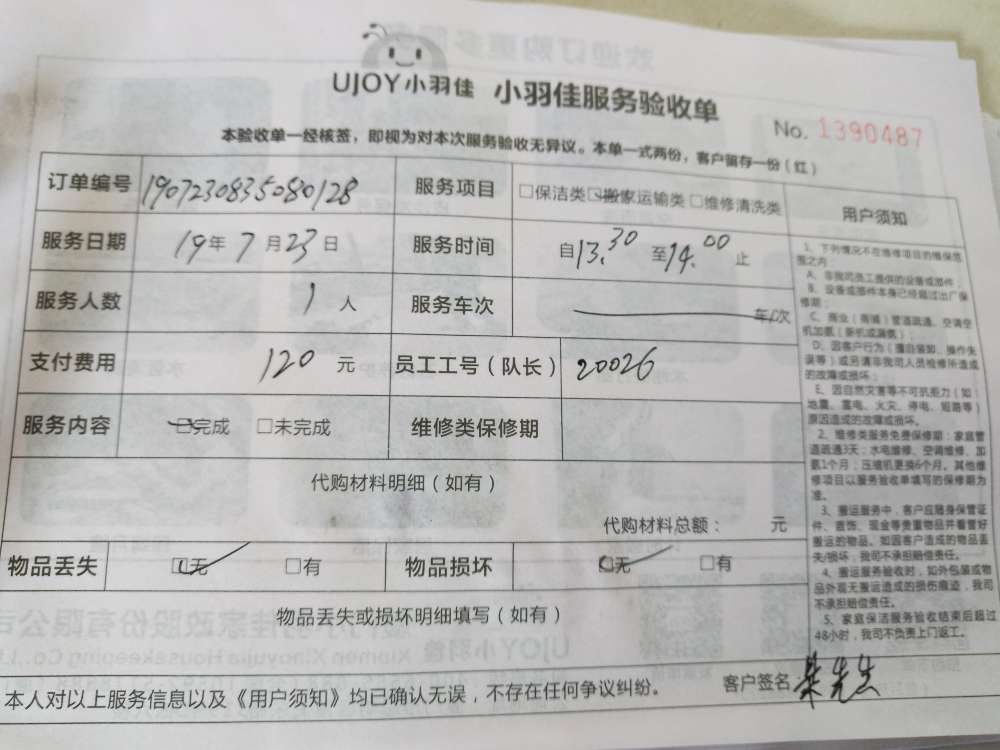 UJOY小羽佳 小羽佳服务验收单
No. 1390487
本验收单一经核签，即视为对本次服务验收无异议。本单一式两份，客户留存一份（红）
订单编号 1907230835080128 服务项目 □保洁类☑搬家运输类 □维修清洗类
服务日期 19年 7月23日 服务时间 自13.30 至14.00止
服务人数 1人 服务车次 车次
支付费用 120 元 员工工号（队长） 20026
服务内容 ☑完成 □未完成 维修类保修期
代购材料明细（如有）
代购材料总额： 元
物品丢失 ☑无 □有 物品损坏 ☑无 □有
物品丢失或损坏明细填写（如有）
本人对以上服务信息以及《用户须知》均已确认无误，不存在任何争议纠纷。 客户签名 先生
用户须知
1、下列情况不在维修项目的维保范
围之内
A、非我司员工提供的设备或部件；
B、设备或部件本身已经超过出厂保
修期；
C、商业（商铺）管道疏通、空调空
机加氨（新机或漏氨）；
D、因客户行为（擅自装卸、操作失
误等）或另请非我司人员检修所造成
的故障或损坏；
E、因自然灾害等不可抗拒力（如：
地震、雷电、火灾、停电、短路等）
原因造成的故障或损坏。
2、维修类服务免费保修期：家庭管
道疏通3天；水电维修、空调维修、加
氨1个月；压缩机更换6个月。其他维
修项目以服务验收单填写的保修期为
准。
3、搬运服务中，客户应随身保管证
件、首饰、现金等贵重物品并看管好
搬运的物品。如因客户造成的物品丢
失/损坏，我司不承担赔偿责任。
4、搬运服务验收时，如外包装或物
品外观无搬运造成的损伤痕迹，我司
不承担赔偿责任。
5、家庭保洁服务验收结束后超过
48小时，我司不负责上门返工。